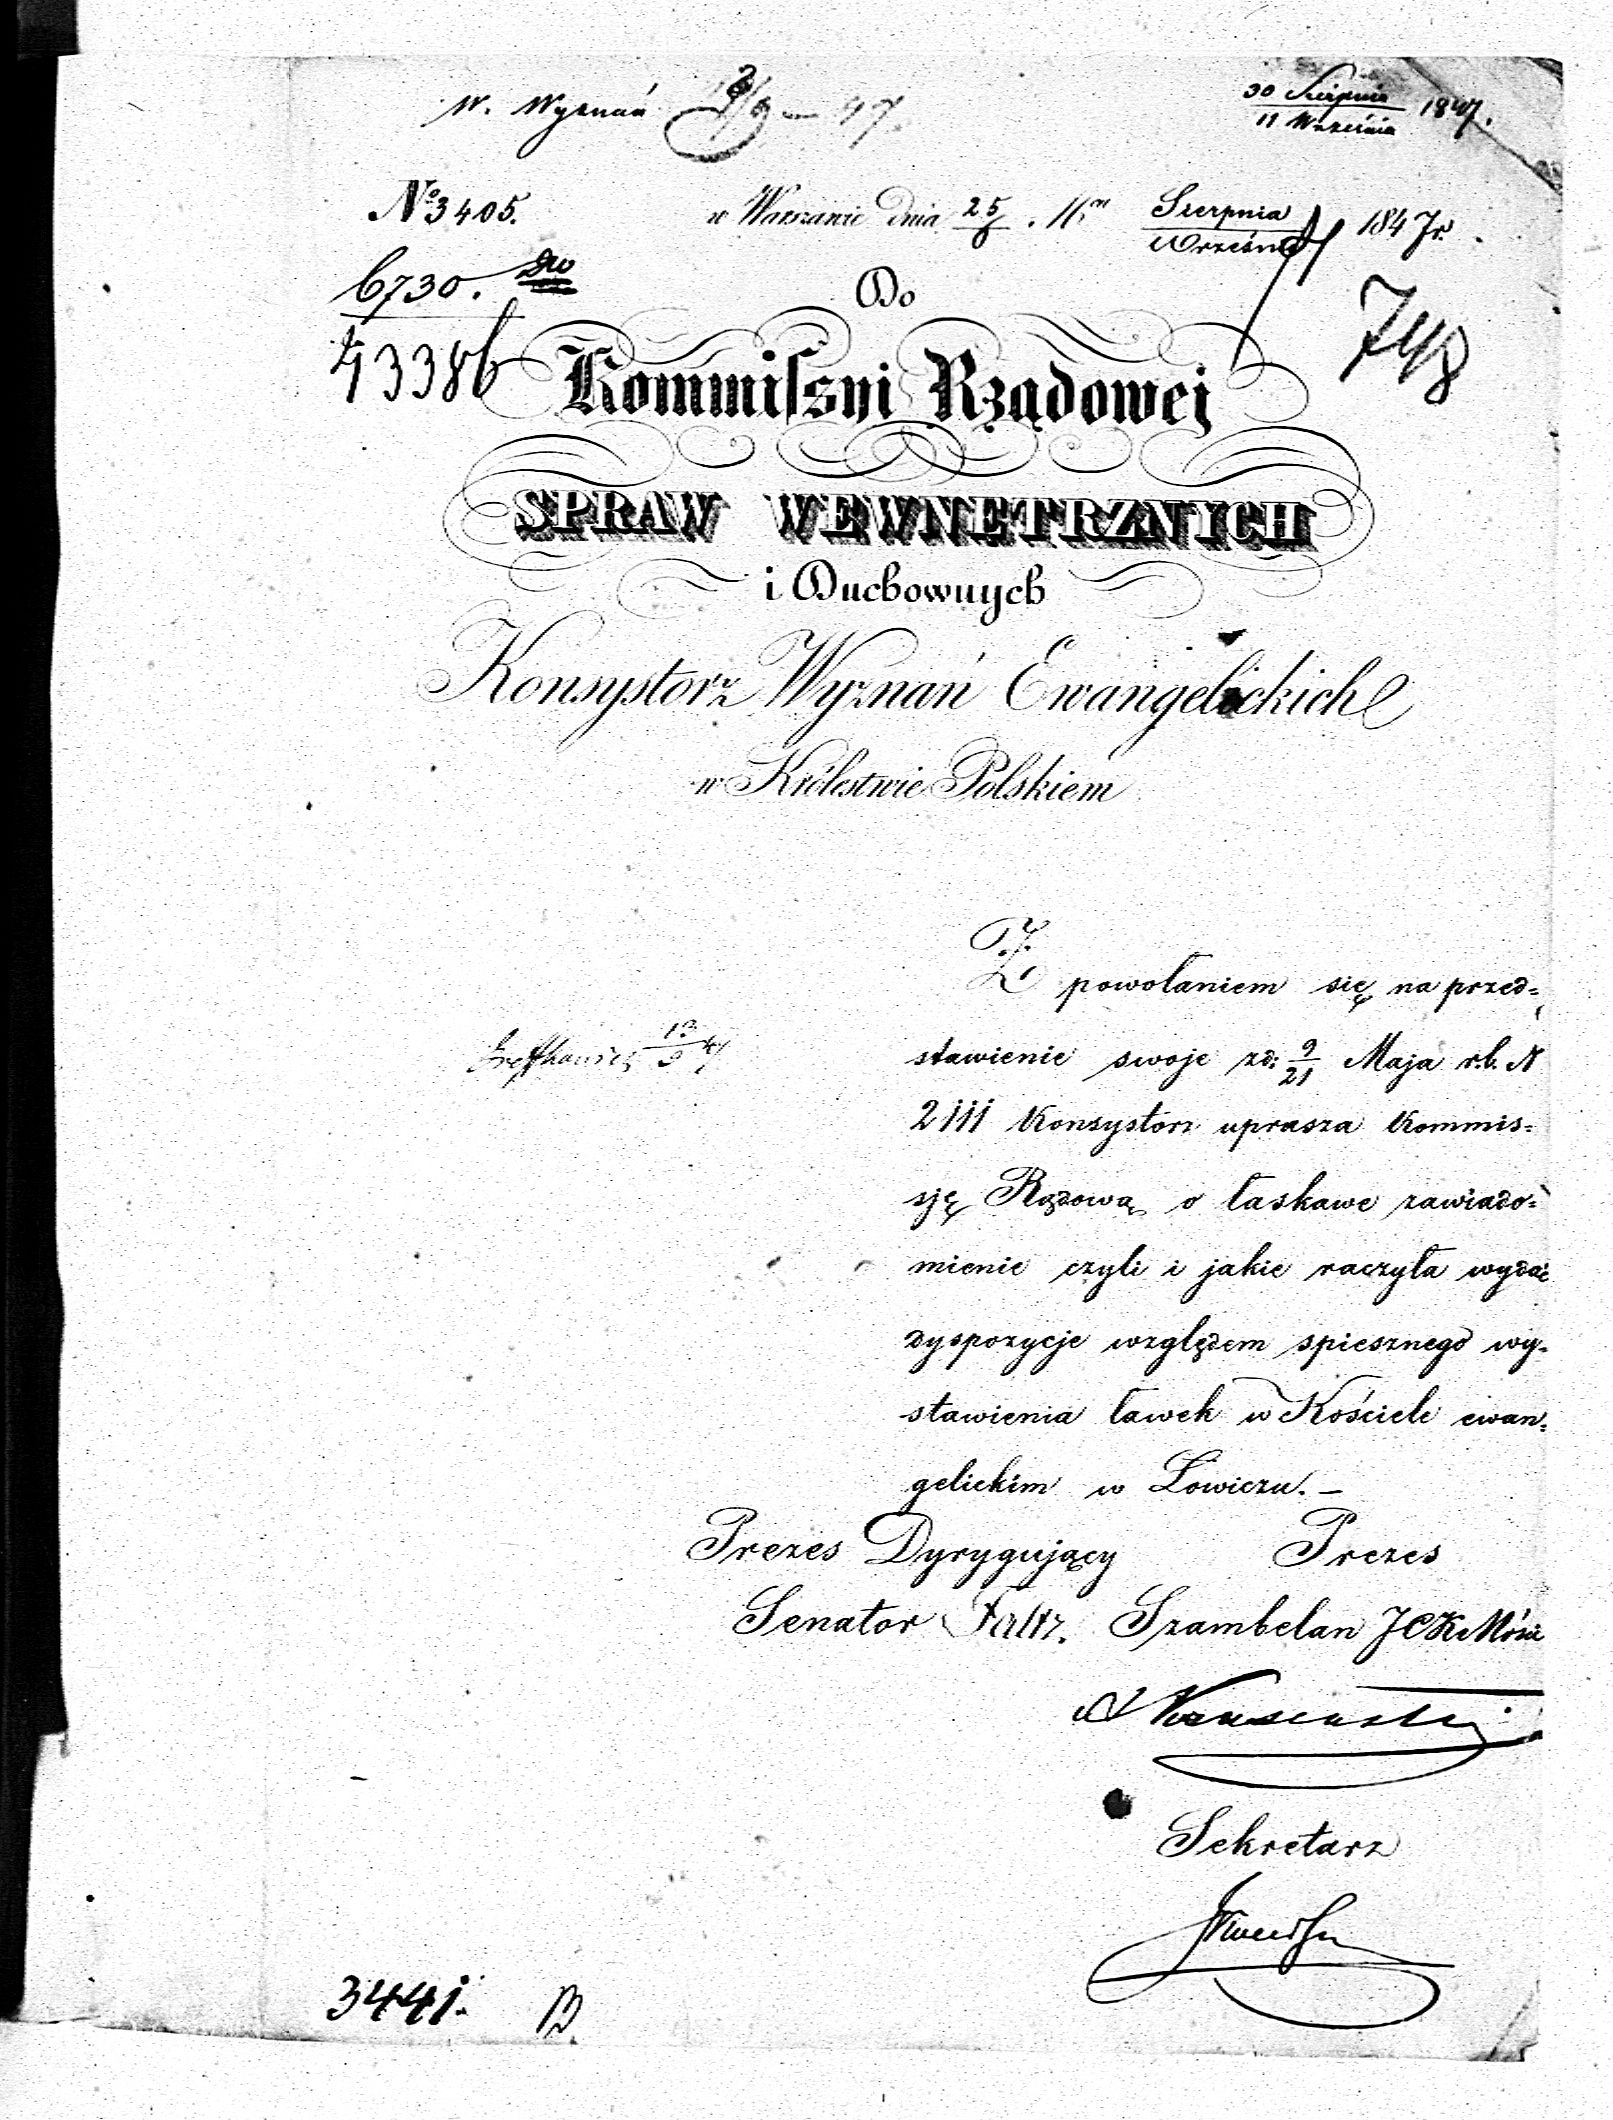 W. Wyznań
30 Sierpnia
11 Września 1847.
№ 3405.
w Warszawie dnia 25/6. Sierpnia
Września 1847 r.
6730.
13386
748
Do
Kommissyi Rządowej
SPRAW WEWNĘTRZNYCH
i Duchownych
Konsystorz Wyznań Ewangelickich
w Królestwie Polskiem
Z powołaniem się na przed=
stawienie swoje zd: 9/21 Maja r.b. N
2111 Konsystorz uprasza Kommis=
sję Rządową o łaskawe zawiado=
mienie czyli i jakie raczyła wydać
dyspozycje względem spiesznego wy=
stawienia ławek w Kościele ewan=
gelickim w Łowiczu. –
Prezes Dyrygujący Prezes
Senator Szambelan JCK Mości
Sekretarz
3441.